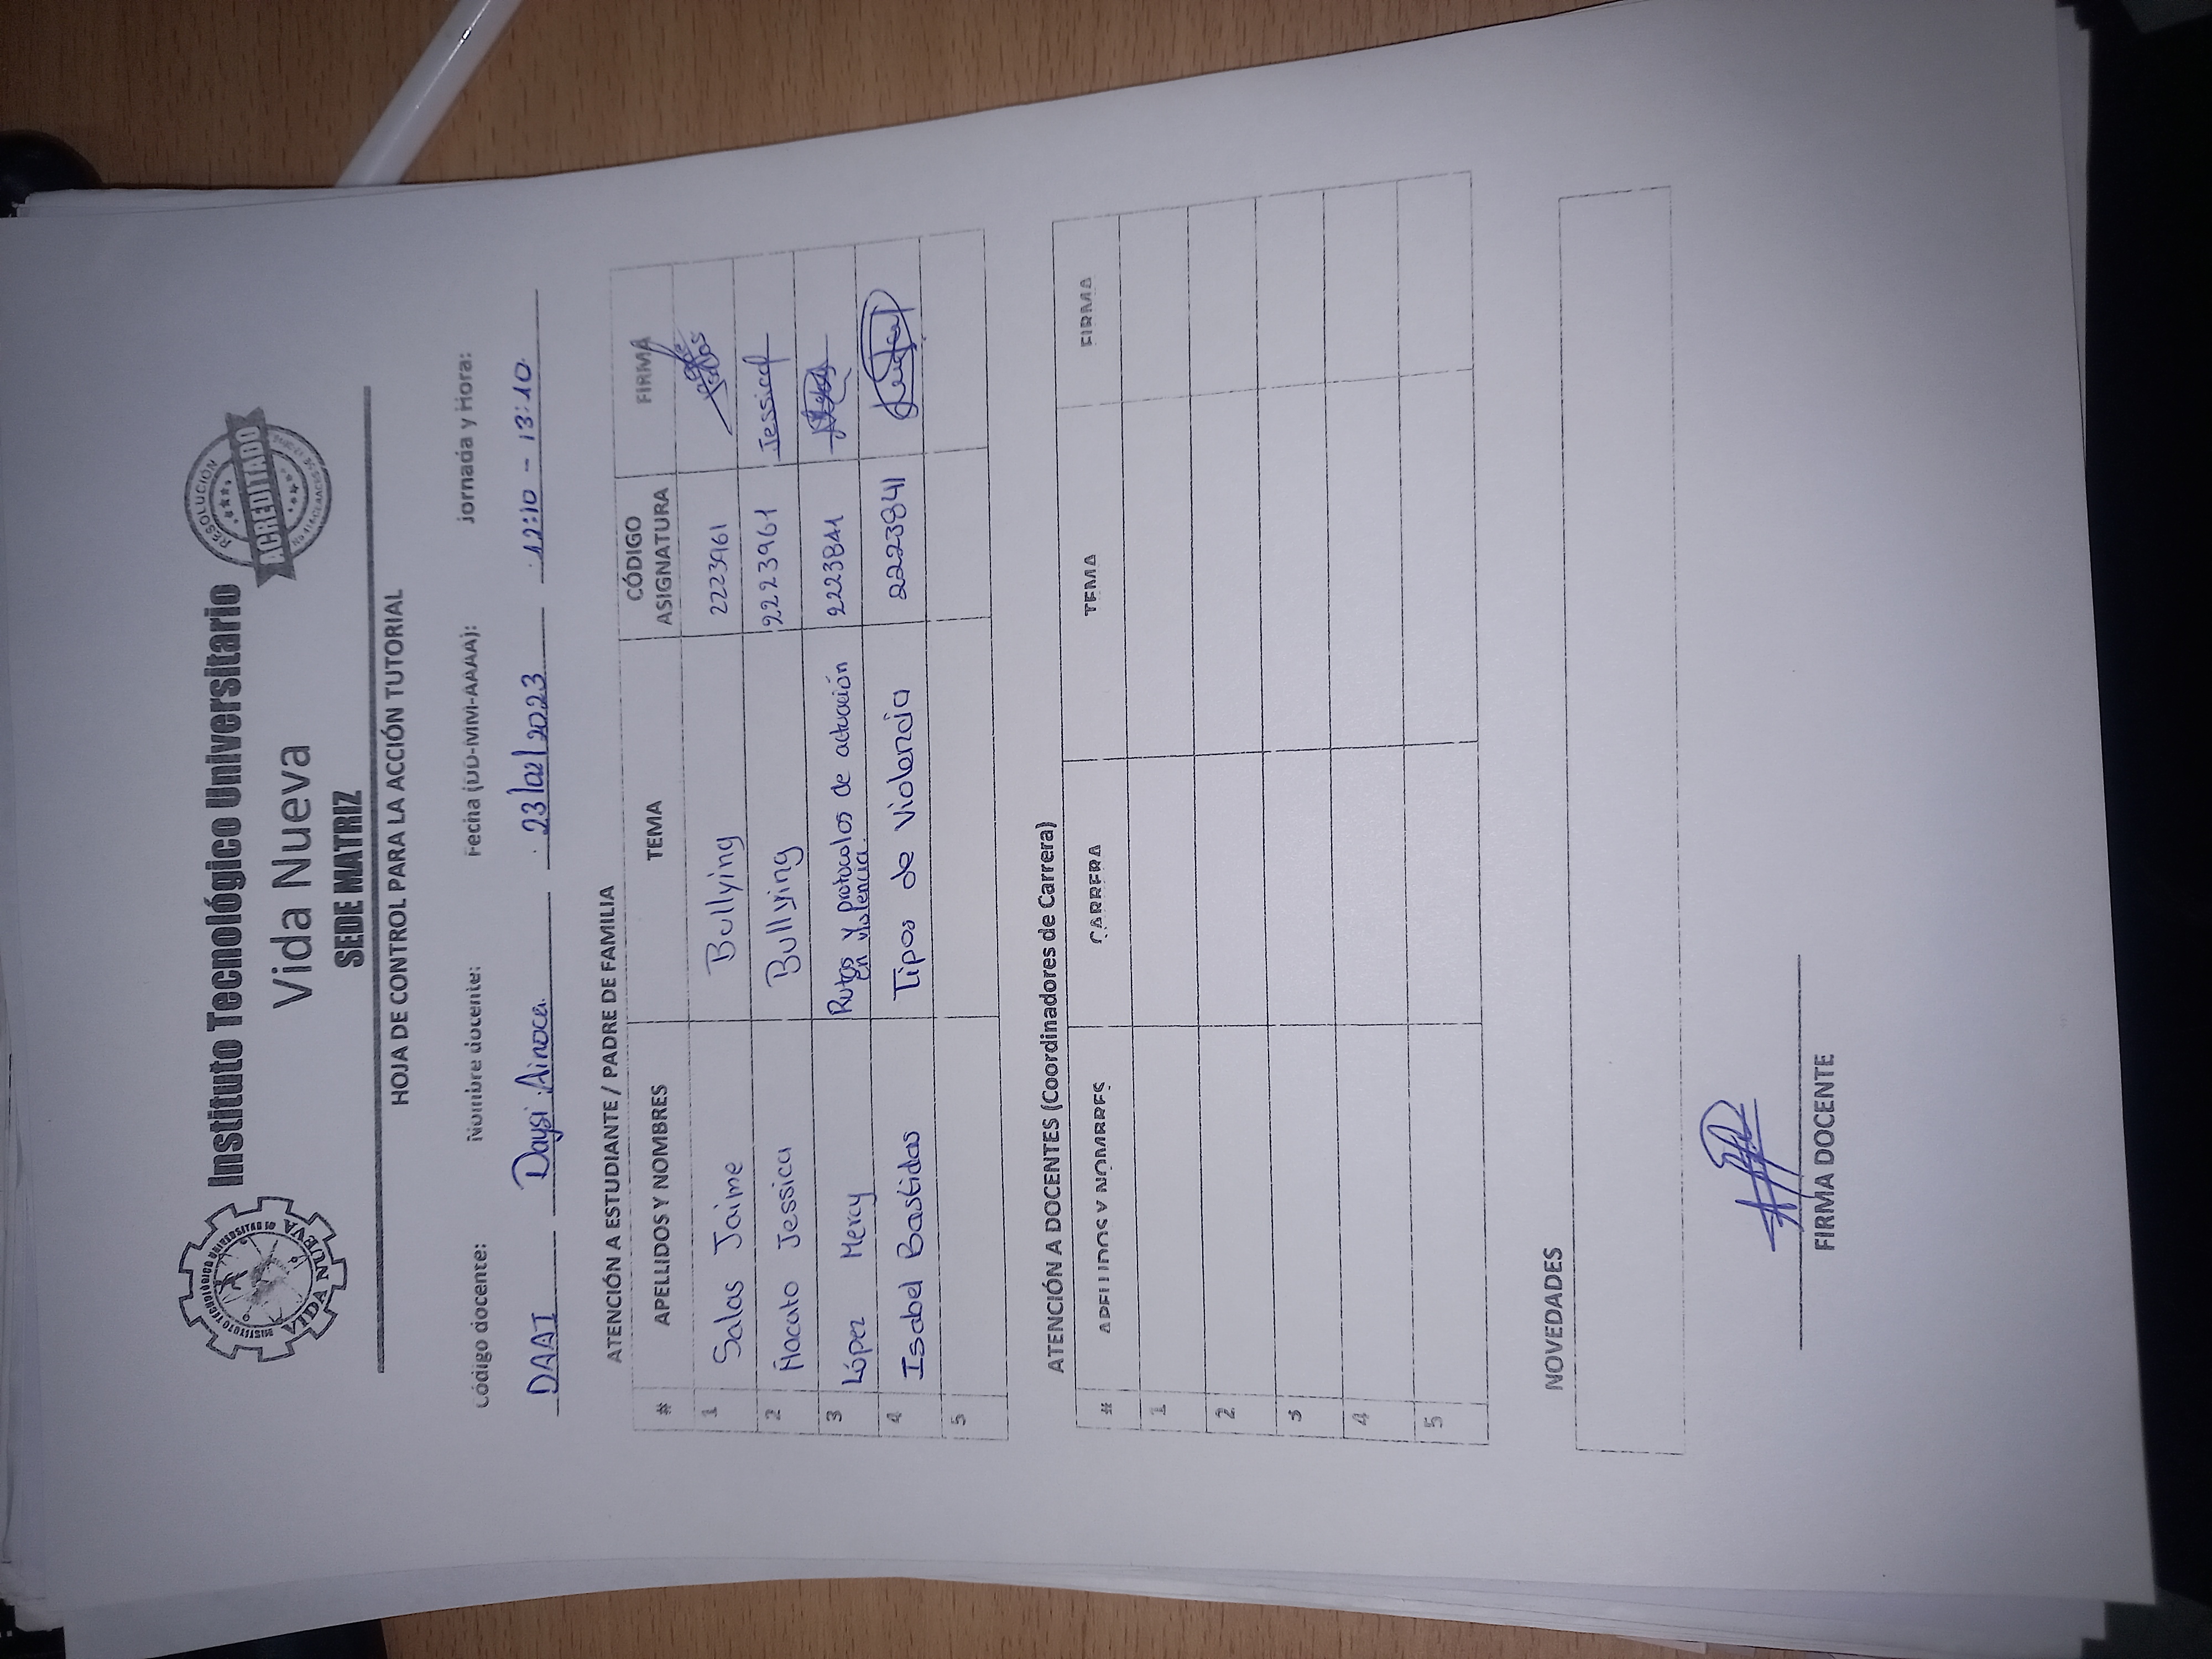 INSTITUTO TECNOLÓGICO UNIVERSITARIO
VIDA NUEVA
Instituto Tecnológico Universitario
Vida Nueva
SEDE MATRIZ
RESOLUCIÓN
ACREDITADO
HOJA DE CONTROL PARA LA ACCIÓN TUTORIAL
Código docente: Nombre docente: Fecha (DD-MM-AAAA): Jornada y Hora:
DAAI Daysi Ainoca 23/02/2023 12:10 - 13:10
ATENCIÓN A ESTUDIANTE / PADRE DE FAMILIA
# APELLIDOS Y NOMBRES TEMA CÓDIGO ASIGNATURA FIRMA
1 Salas Jaime Bullying 2223961
2 Ñacato Jessica Bullying 2223961 Jessica
3 López Mercy Rutas y protocolos de actuación 2223841
en violencia.
4 Isabel Bastidas Tipos de Violencia 2223841
5
ATENCIÓN A DOCENTES (Coordinadores de Carrera)
# APELLIDOS Y NOMBRES CARRERA TEMA FIRMA
1
2
3
4
5
NOVEDADES
FIRMA DOCENTE